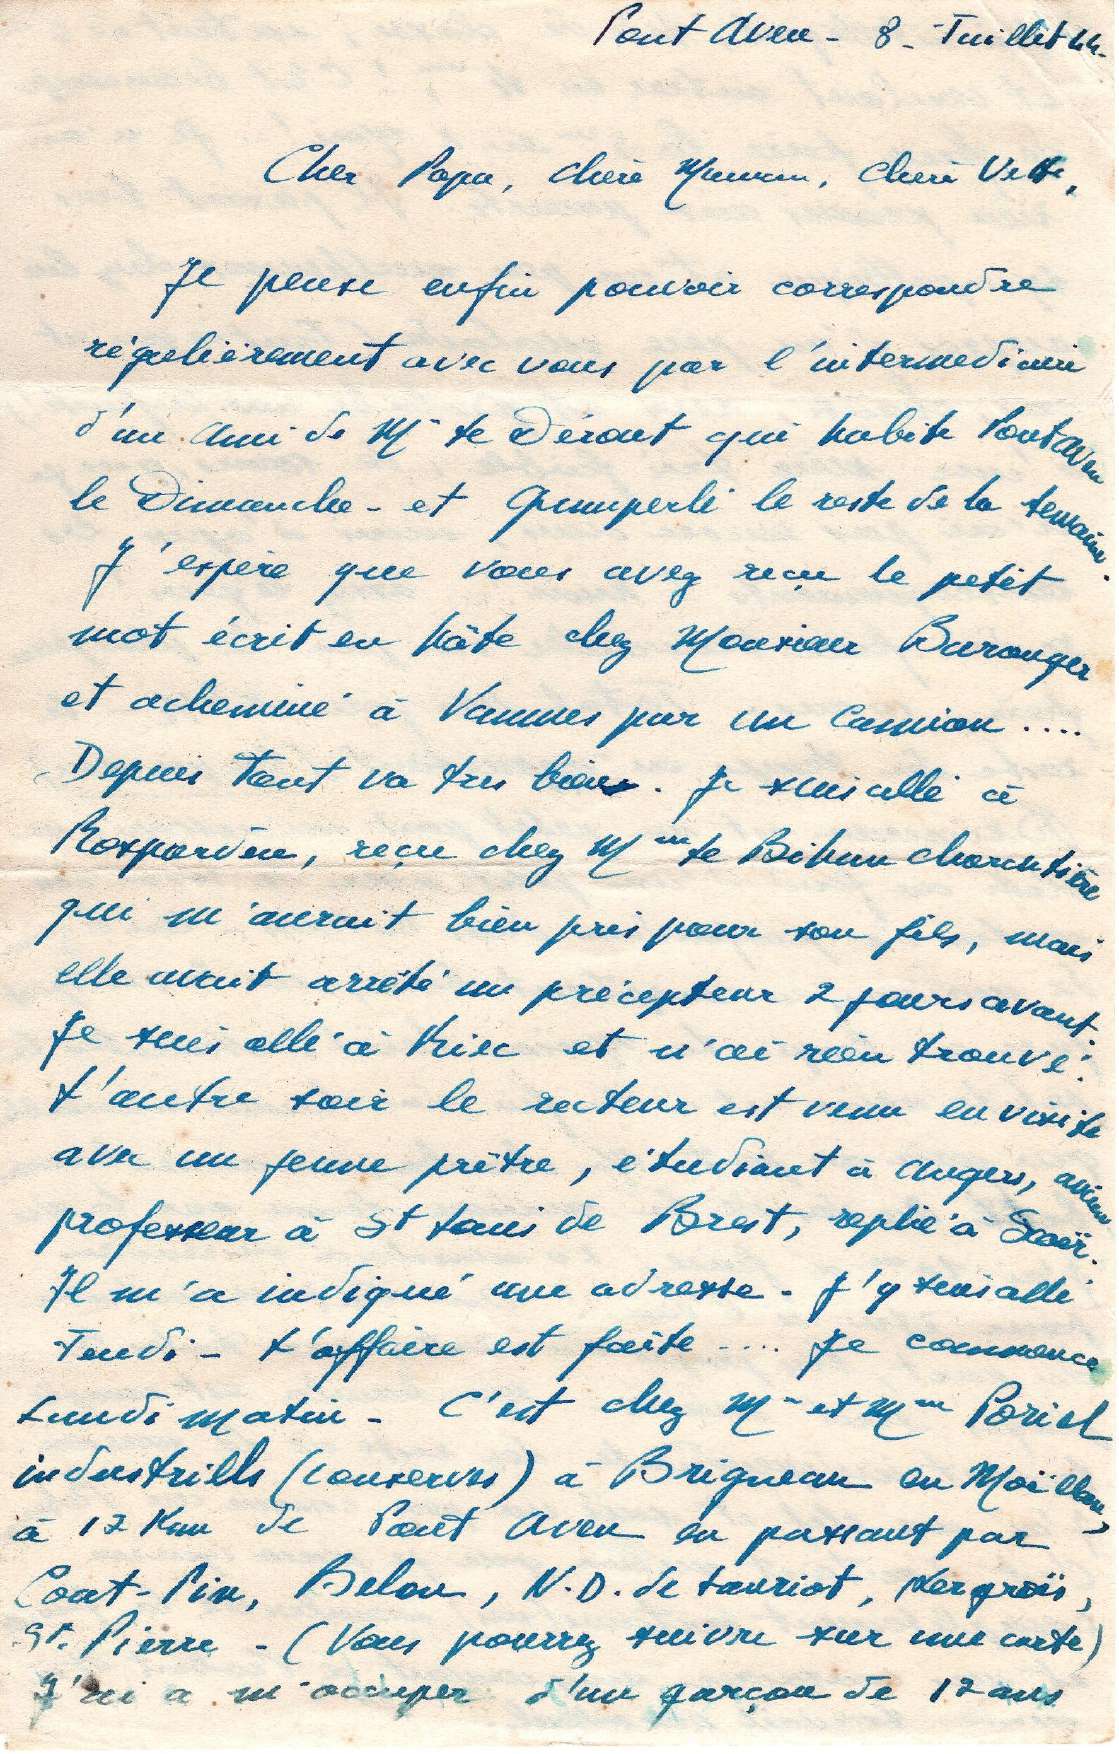 Pont Aven - 8 - Juillet 44.
Cher Papa, chère Maman, chère Vette,
Je pense enfin pouvoir correspondre
régulièrement avec vous par l'intermediaire
d'un ami de Mr Le Dérout qui habite Pont Aven
le Dimanche - et Quimperlé le reste de la semaine.
J'espère que vous avez reçu le petit
mot écrit en hâte chez Monsieur Baranger
et acheminé à Vannes par un Camion ....
Depuis tout va très bien. Je suis allé à
Rosporden, reçu chez Mme Le Bihan charcutière
qui m'aurait bien pris pour son fils, mais
elle avait arrêté un précepteur 2 jours avant.
Je suis allé à Riec et n'ai rien trouvé.
L'autre soir le recteur est venu en visite
avec un jeune prêtre, étudiant à Angers, ancien
professeur à St Louis de Brest, replié à Scaër.
Il m'a indiqué une adresse - J'y suis allé
Jeudi - L'affaire est faite .... Je commence
Lundi matin - C'est chez Mr et Mme Poriel
industriels (conserves) à Brigneau en Moëllan,
à 12 Km de Pont Aven en passant par
Coat-Pin, Belon, N.D. de Lanriot, Kergroës,
St. Pierre - (Vous pourrez suivre sur une carte)
J'ai a m'occuper d'un garçon de 12 ans